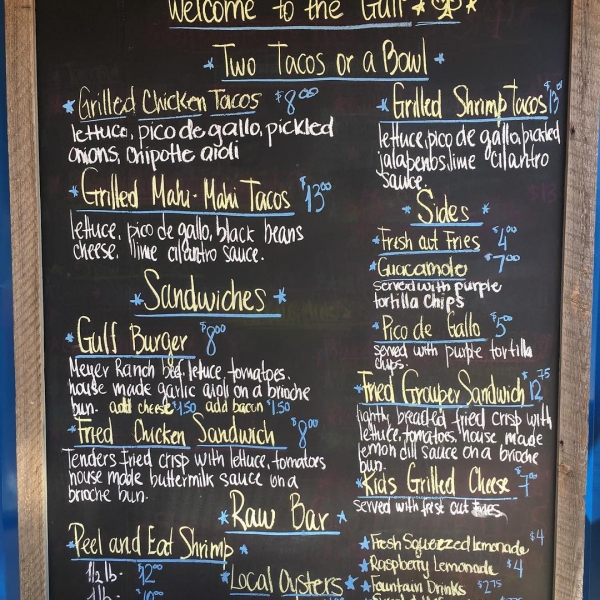 Welcome to the Gulf
Two Tacos or a Bowl
Grilled Chicken Tacos $8.00
lettuce, pico de gallo, pickled
onions, chipotle aioli
Grilled Mahi-Mahi Tacos $13.00
lettuce, pico de gallo, black beans
cheese. lime cilantro sauce.
Sandwiches
Gulf Burger $8.00
Meyer Ranch beef, lettuce, tomatoes.
house made garlic aioli on a brioche
bun. add cheese $1.50 add bacon $1.50
Fried Chicken Sandwich $8.00
Tenders fried crisp with lettuce, tomatoes
house made buttermilk sauce on a
brioche bun.
Raw Bar
Peel and Eat Shrimp
1/2 lb.
1 lb.
Local Oysters
Grilled Shrimp Tacos $13
lettuce, pico de gallo, pickled
jalapenos, lime cilantro
sauce.
Sides
Fresh cut Fries $4.00
Guacamole $7.00
served with purple
tortilla chips
Pico de Gallo $5.00
served with purple tortilla
chips.
Fried Grouper Sandwich $12.75
lightly breaded fried crisp with
lettuce, tomatoes, house made
lemon dill sauce on a brioche
bun.
Kids Grilled Cheese $7.00
served with fresh cut fries
Fresh Squeezed Lemonade $4
Raspberry Lemonade $4
Fountain Drinks $2.75